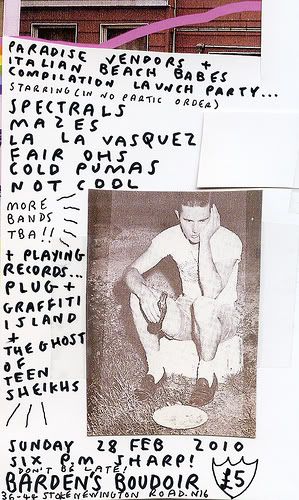 PARADISE VENDORS +
ITALIAN BEACH BABES
COMPILATION LAUNCH PARTY...
STARRING (IN NO PARTIC ORDER)
SPECTRALS
MAZES
LA LA VASQUEZ
FAIR OHS
COLD PUMAS
NOT COOL
MORE
BANDS
TBA!!
+ PLAYING
RECORDS...
PLUG +
GRAFFITI
ISLAND
+
THE GHOST
OF
TEEN
SHEIKHS
SUNDAY 28 FEB 2010
SIX P.M. SHARP!
DON'T BE LATE!
BARDEN'S BOUDOIR
£5
36-44 STOKE NEWINGTON ROAD. N16